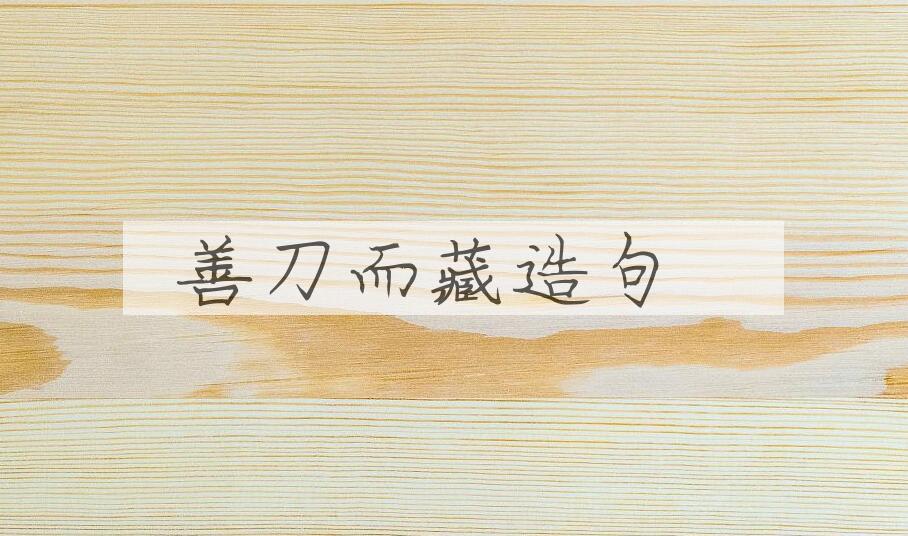 善刀而藏造句